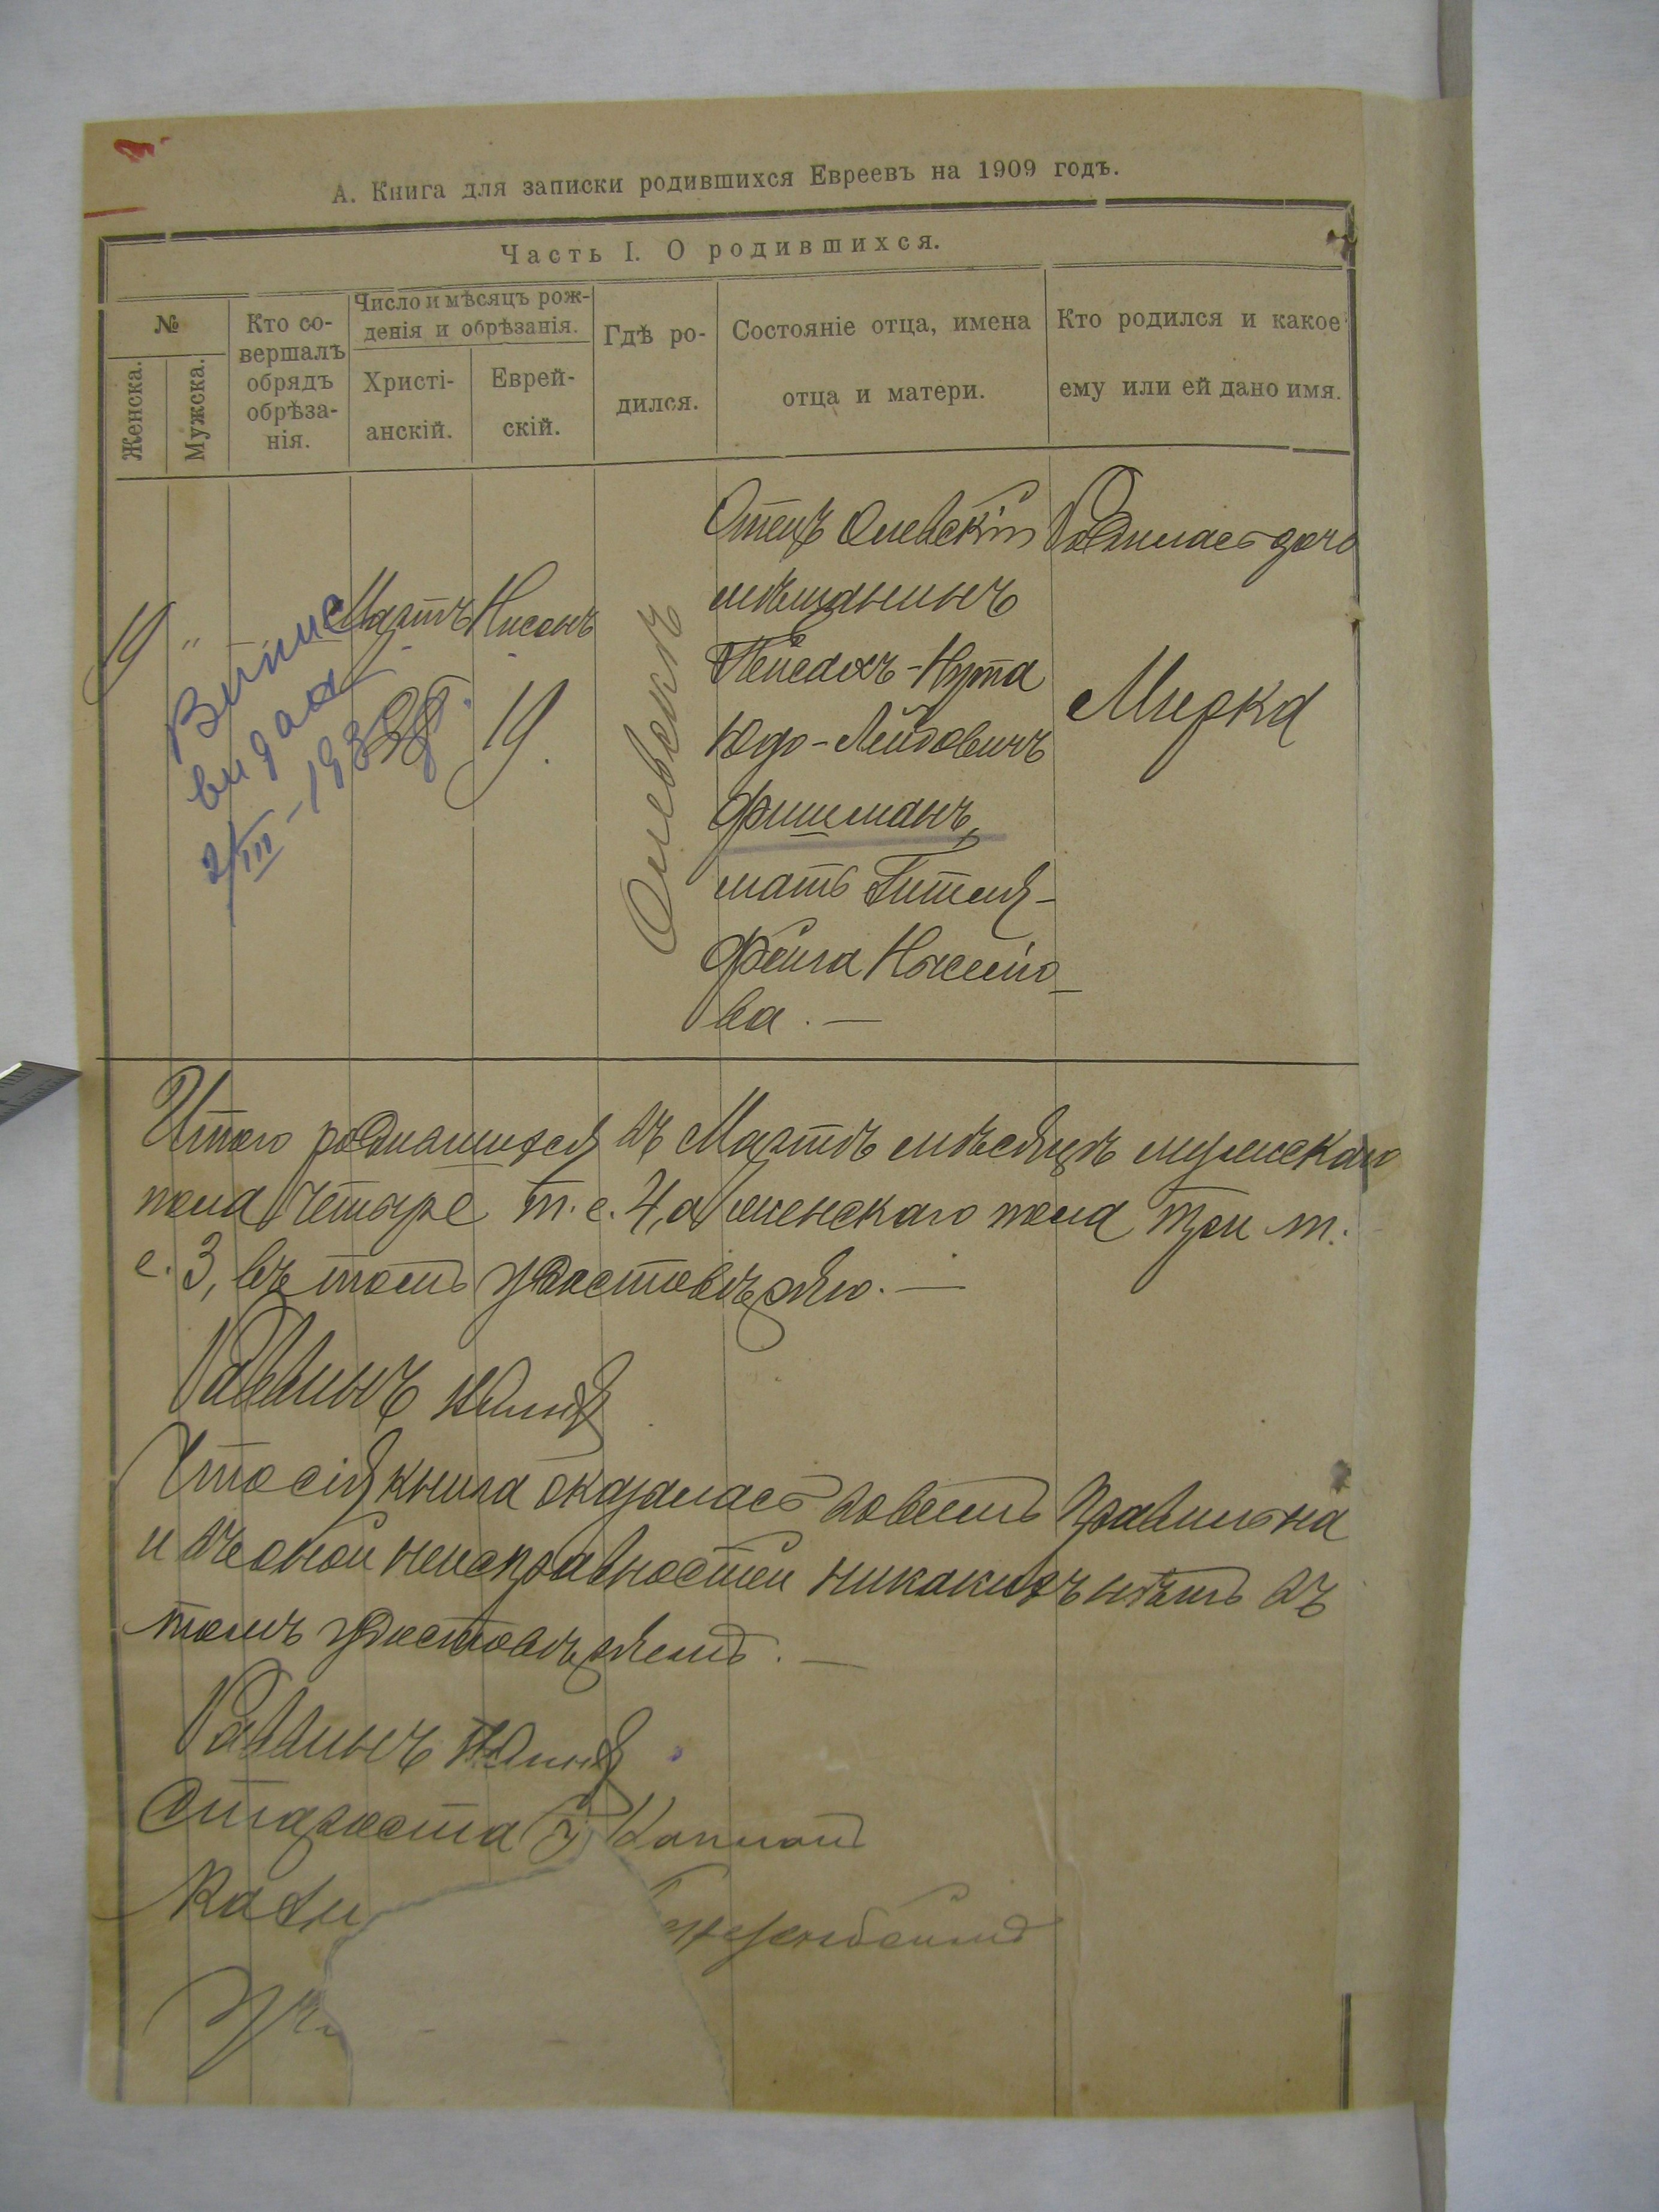 А. Книга для записки родившихся Евреевъ на 1909 годъ.
Часть I. О родившихся.
№
Женска.
Мужска.
Кто со-
вершалъ
обрядъ
обрѣза-
нія.
Число и мѣсяцъ рож-
денія и обрѣзанія.
Христі-
анскій.
Еврей-
скій.
Гдѣ ро-
дился.
Состояніе отца, имена
отца и матери.
Кто родился и какое
ему или ей дано имя.
19
"
Випис
видана
2/III-193
Мартъ
28
Нисонъ
19.
Олевскъ
Отецъ Олевскій
мѣщанинъ
Пейсахъ-Нута
Юдо-Лейбовичъ
Фишманъ,
мать Гителя-
Фейга
ва. —
Родилась дочь
Мирка
Итого родившихся въ Мартѣ мѣсяцѣ мужскаго
пола четыре т. е. 4, а женскаго пола три т.
е. 3, въ томъ удостовѣряю. —
Раввинъ
Что сія книга оказалась вовсемъ правильна
и въ оной неисправностей никакихъ нѣтъ въ
томъ удостовѣряемъ. —
Раввинъ
Староста
Казн